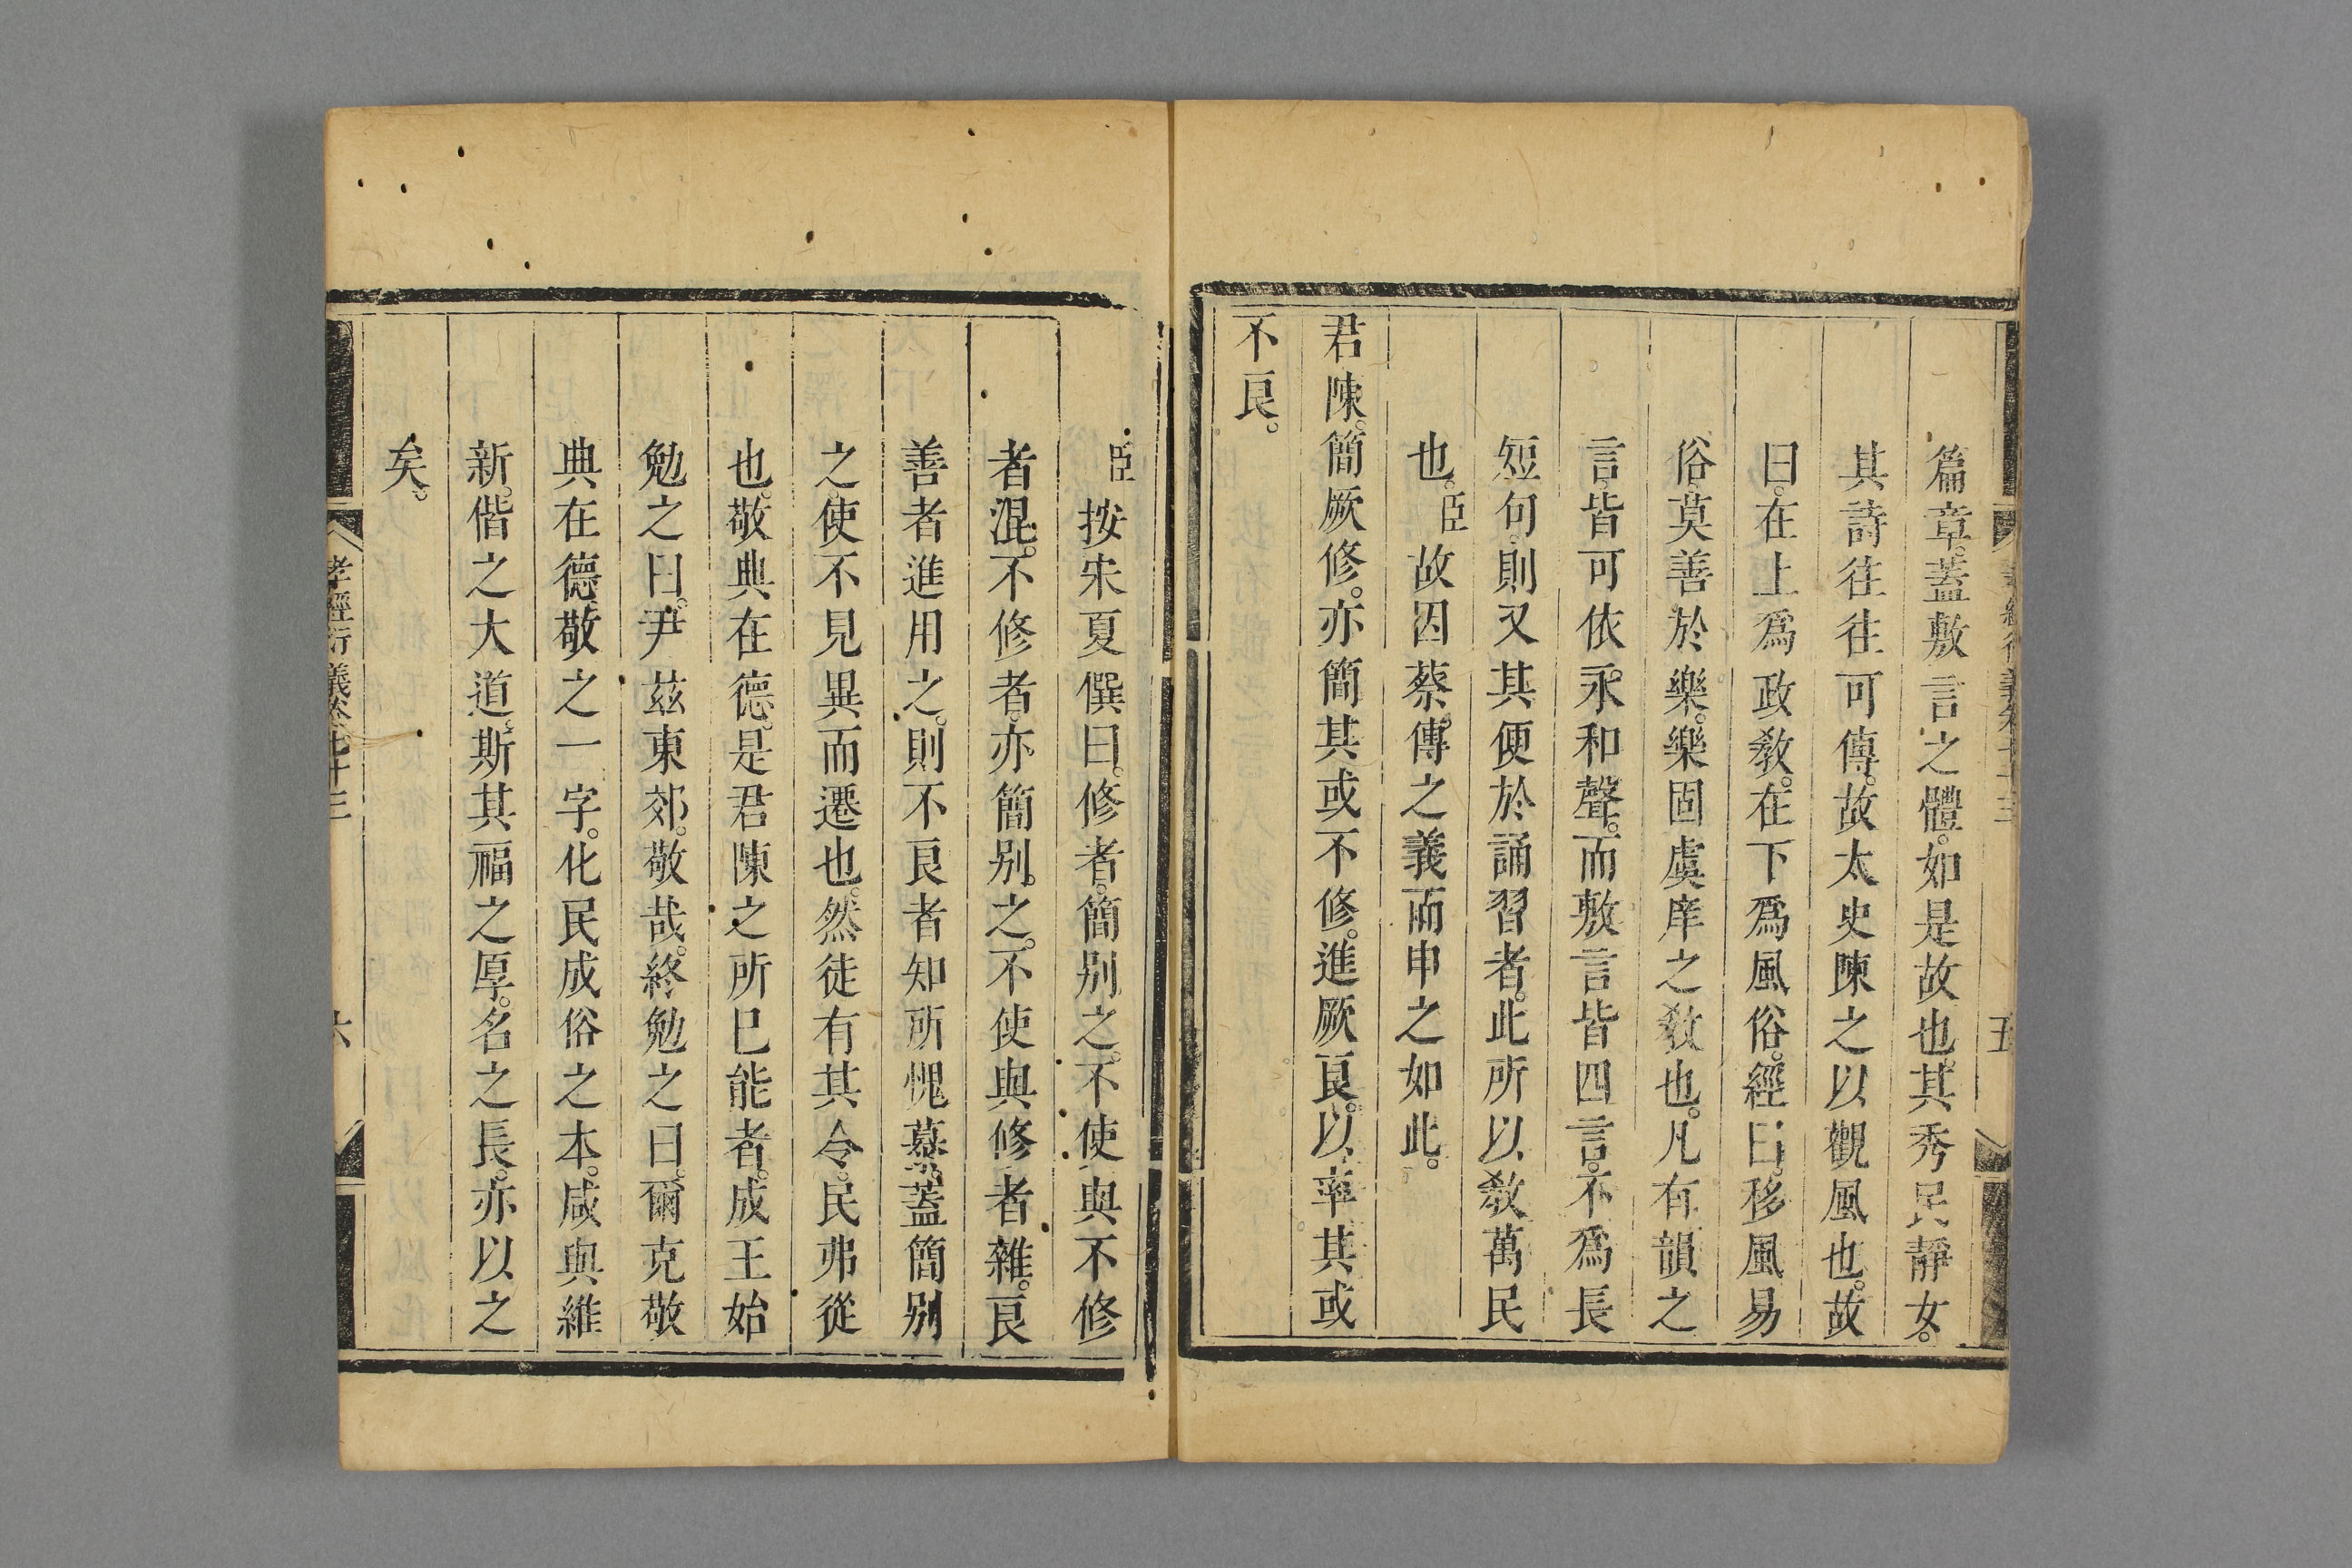 篇章。蓋敷言之體。如是故也。其秀民靜女。
其詩往往可傳。故太史陳之以觀風也。故
曰。在上爲政敎。在下爲風俗。經曰。移風易
俗。莫善於樂。樂固虞庠之敎也。凡有韻之
言。皆可依永和聲。而敷言皆四言。不爲長
短句。則又其便於誦習者。此所以敎萬民
也。臣故因蔡傳之義而申之如此。
君陳。簡厥修。亦簡其或不修。進厥良。以率其或
不良。
臣按宋夏僎曰。修者。簡别之。不使與不修
者混。不修者。亦簡别之。不使與修者雜。良
善者進用之。則不良者知所愧慕。蓋簡别
之。使不見異而遷也。然徒有其令。民弗從
也。敬典在德。是君陳之所已能者。成王始
勉之曰。尹茲東郊。敬哉。終勉之曰。爾克敬
典在德。敬之一字。化民成俗之本。咸與維
新。偕之大道。斯其福之厚。名之長。亦以之
矣。
孝經衍義卷七十三
六